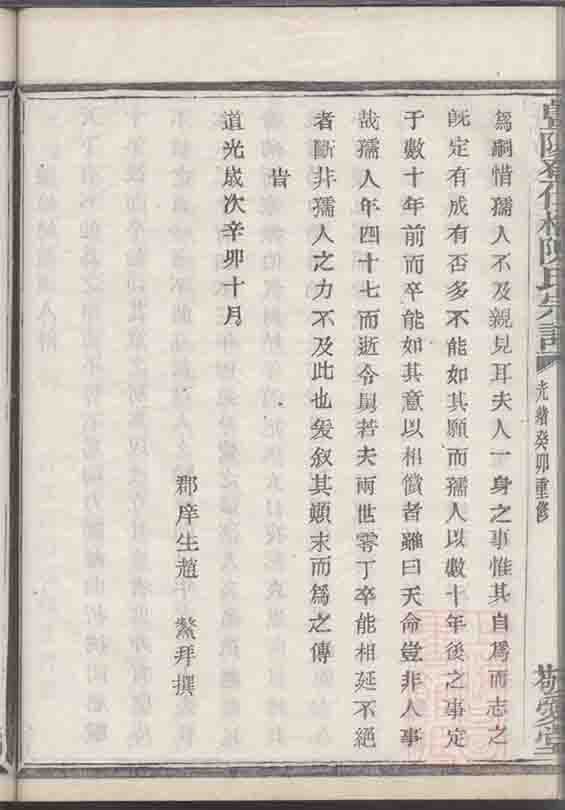 宗譜
光緒癸卯重修
敬愛堂
爲嗣惜孺人不及親見耳夫人一身之事惟其自爲而志之
旣定有成有否多不能如其願而孺人以數十年後之事定
于數十年前而卒能如其意以相償者雖曰天命豈非人事
哉孺人年四十七而逝令舅若夫兩世零丁卒能相延不絕
者斷非孺人之力不及此也爰叙其顚末而爲之傳
旹
道光歲次辛卯十月
郡庠生趙 鰲拜撰